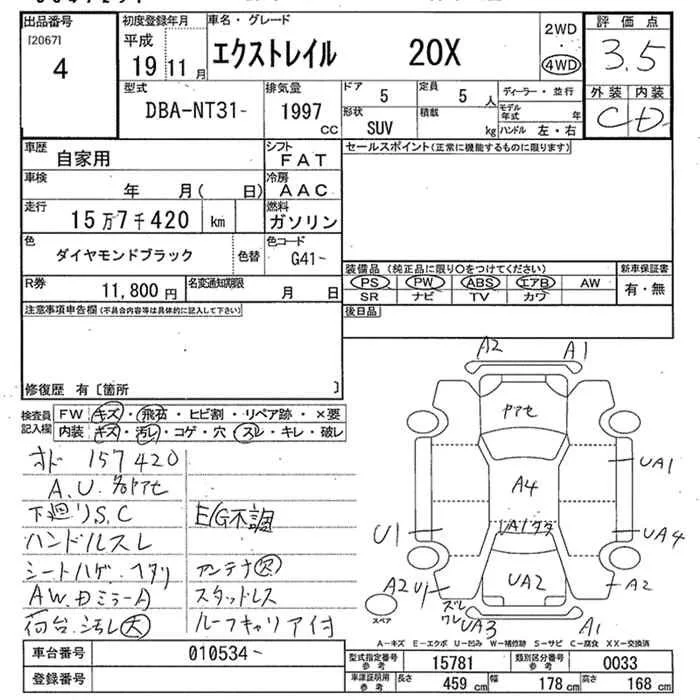 出品番号
[2067]
4
初度登録年月
平成
19 11月
車名・グレード
エクストレイル 20X
2WD
・
4WD
評価点
3.5
外装 内装
C D
型式
DBA-NT31-
排気量
1997
cc
ドア
5
形状
SUV
定員
5 人
積載
kg
ディーラー・並行
モデル年式 年
ハンドル 左・右
車歴
自家用
シフト
FAT
セールスポイント(正常に機能するものに限ります)
車検
年 月( 日)
冷房
AAC
走行
15万7千420 km
燃料
ガソリン
色
ダイヤモンドブラック
色替
色コード
G41-
R券
11,800円
名変通知期限
月 日
装備品 (純正品に限り○をつけてください)
PS PW ABS エアB AW
SR ナビ TV カワ
新車保証書
有・無
後日品
注意事項申告欄(不具合内容等は具体的に記入して下さい)
修復歴 有〔箇所 〕
検査員記入欄
FW キズ・飛石・ヒビ割・リペア跡・×要
内装 キズ・汚レ・コゲ・穴・スレ・キレ・破レ
オド 157420
A.U.各ヤアセ
下廻リS.C
E/G不調
ハンドルスレ
シートハゲ・ヘタリ
アンテナ欠
AW.Dミラー A
スタッドレス
荷台.汚レ大
ルーフキャリア付
A2 A1
ヤアセ
UA1
A4
U1
UA4
A2 U1
UA2
A2
ズレ
ワレ
UA3
A1
スペア
A-キズ E-エクボ U-凹み W-補修跡 S-サビ C-腐食 XX-交換済
車台番号
010534-
登録番号
型式指定番号
参考
15781
類別区分番号
参考
0033
車庫証明用
参考
長さ
459 cm
幅
178 cm
高さ
168 cm